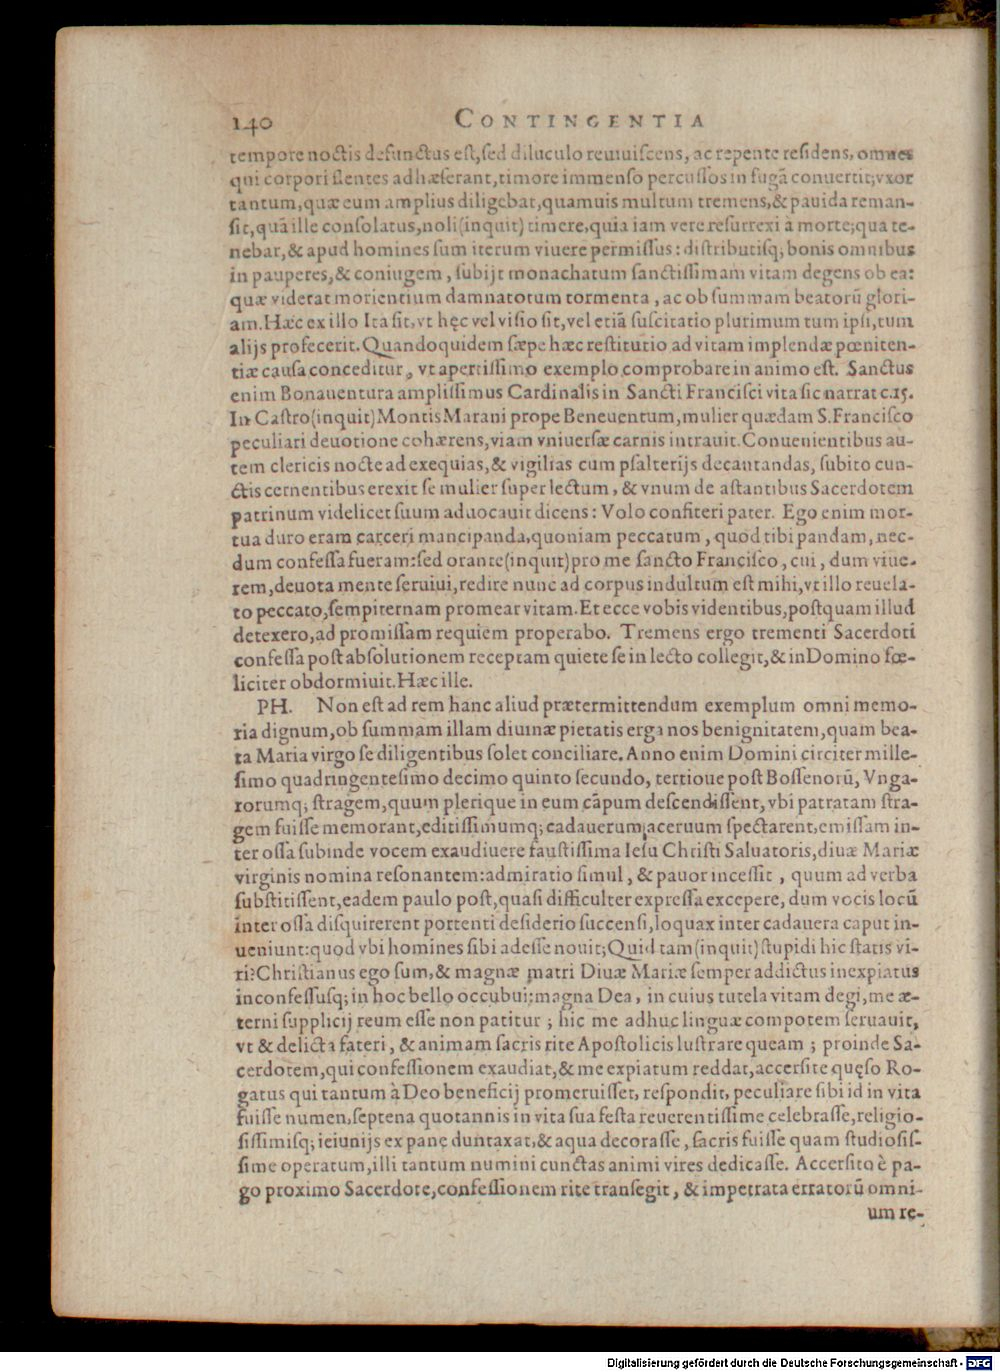 140 CONTINGENTIA
tempore noctis defunctus est, sed diluculo reuiuiscens, ac repente residens, omnes
qui corpori flentes adhæserant, timore immenso percussos in fugā conuertit; vxor
tantum, quæ eum amplius diligebat, quamuis multum tremens, & pauida reman-
sit, quā ille consolatus, noli (inquit) timere, quia iam vere resurrexi à morte; qua te-
nebar, & apud homines sum iterum viuere permissus: distributisq; bonis omnibus
in pauperes, & coniugem, subijt monachatum sanctissimam vitam degens ob ea:
quæ viderat morientium damnatorum tormenta, ac ob summam beatorū glori-
am. Hæc ex illo Ita sit, vt hęc vel visio sit, vel etiā suscitatio plurimum tum ipsi, tum
alijs profecerit. Quandoquidem sæpe hæc restitutio ad vitam implendæ pœniten-
tiæ causa conceditur, vt apertissimo exemplo comprobare in animo est. Sanctus
enim Bonauentura amplissimus Cardinalis in Sancti Francisci vita sic narrat c. 15.
In Castro (inquit) Montis Marani prope Beneuentum, mulier quædam S. Francisco
peculiari deuotione cohærens, viam vniuersæ carnis intrauit. Conuenientibus au-
tem clericis nocte ad exequias, & vigilias cum psalterijs decantandas, subito cun-
ctis cernentibus erexit se mulier super lectum, & vnum de astantibus Sacerdotem
patrinum videlicet suum aduocauit dicens: Volo confiteri pater. Ego enim mor-
tua duro eram carceri mancipanda, quoniam peccatum, quod tibi pandam, nec-
dum confessa fueram: sed orante (inquit) pro me sancto Francisco, cui, dum viue-
rem, deuota mente seruiui, redire nunc ad corpus indultum est mihi, vt illo reuela-
to peccato, sempiternam promear vitam. Et ecce vobis videntibus, postquam illud
detexero, ad promissam requiem properabo. Tremens ergo trementi Sacerdoti
confessa post absolutionem receptam quiete se in lecto collegit, & in Domino fœ-
liciter obdormiuit. Hæc ille.
PH. Non est ad rem hanc aliud prætermittendum exemplum omni memo-
ria dignum, ob summam illam diuinæ pietatis erga nos benignitatem, quam bea-
ta Maria virgo se diligentibus solet conciliare. Anno enim Domini circiter mille-
simo quadringentesimo decimo quinto secundo, tertioue post Bossenorū, Vnga-
rorumq; stragem, quum plerique in eum cāpum descendissent, vbi patratam stra-
gem fuisse memorant, editissimumq; cadauerum aceruum spectarent, emissam in-
ter ossa subinde vocem exaudiuere faustissima Iesu Christi Saluatoris, diuæ Mariæ
virginis nomina resonantem: admiratio simul, & pauor incessit, quum ad verba
substitissent, eadem paulo post, quasi difficulter expressa excepere, dum vocis locū
inter ossa disquirerent portenti desiderio succensi, loquax inter cadauera caput in-
ueniunt: quod vbi homines sibi adesse nouit; Quid tam (inquit) stupidi hic statis vi-
ri? Christianus ego sum, & magnæ matri Diuæ Mariæ semper addictus inexpiatus
inconfessusq; in hoc bello occubui: magna Dea, in cuius tutela vitam degi, me æ-
terni supplicij reum esse non patitur; hic me adhuc linguæ compotem seruauit,
vt & delicta fateri, & animam sacris rite Apostolicis lustrare queam; proinde Sa-
cerdotem, qui confessionem exaudiat, & me expiatum reddat, accersite quęso Ro-
gatus qui tantum à Deo beneficij promeruisset, respondit, peculiare sibi id in vita
fuisse numen, septena quotannis in vita sua festa reuerentissime celebrasse, religio-
sissimisq; ieiunijs ex pane duntaxat, & aqua decorasse, sacris fuisse quam studiosis-
sime operatum, illi tantum numini cunctas animi vires dedicasse. Accersito è pa-
go proximo Sacerdote, confessionem rite transegit, & impetrata erratorū omni-
um re-
Digitalisierung gefördert durch die Deutsche Forschungsgemeinschaft - DFG